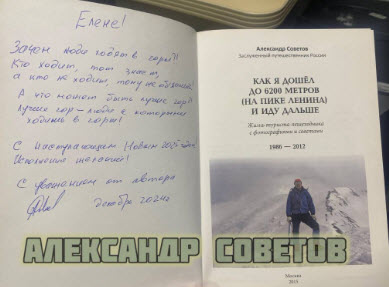 Елене!
Зачем люди ходят в горы?!
Кто ходит, тот знает,
а кто не ходит, тому не объяснить!
А что может быть лучше гор?!
Лучше гор – люди с которыми
ходишь в горы!
С наступающим Новым 2025 годом!
Исполнения желаний!
С уважением от автора
декабрь 2024г.
Александр Советов
Заслуженный путешественник России
КАК Я ДОШЁЛ
ДО 6200 МЕТРОВ
(НА ПИКЕ ЛЕНИНА)
И ИДУ ДАЛЬШЕ
Жизнь туриста-пешеходника
с фотографиями и советами
1980 — 2012
Москва
2015
АЛЕКСАНДР СОВЕТОВ